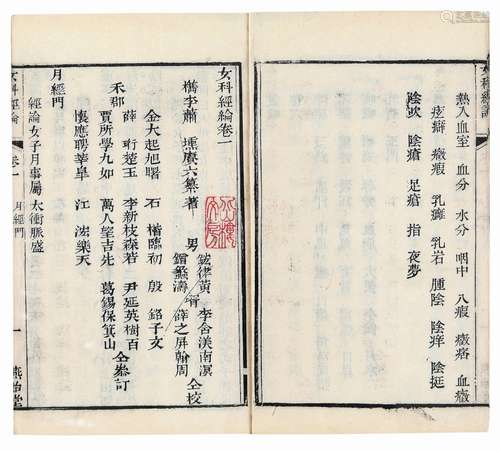 熱入血室 血分 水分 咽中 八瘕 癥痞 血癥
痃癖 癥瘕 乳癰 乳岩 腫陰 陰痒 陰挺
陰吹 陰瘡 足瘡 指 夜夢
女科經論卷一
檇李蕭 壎賡六纂著
男
李含渼南溟
薛之屏翰周
仝校
金大起旭曙 石 楷臨初 殷 銘子文
禾郡
薛 珩楚玉 李新枝森若 尹延英樹百
賈所學九如 萬人望吉先 葛錫保箕山
懷應聘莘臯 江 濤樂天
仝參訂
月經門
經論女子月事屬太衝脈盛
女科經論
卷一
月經門
一
燕貽堂